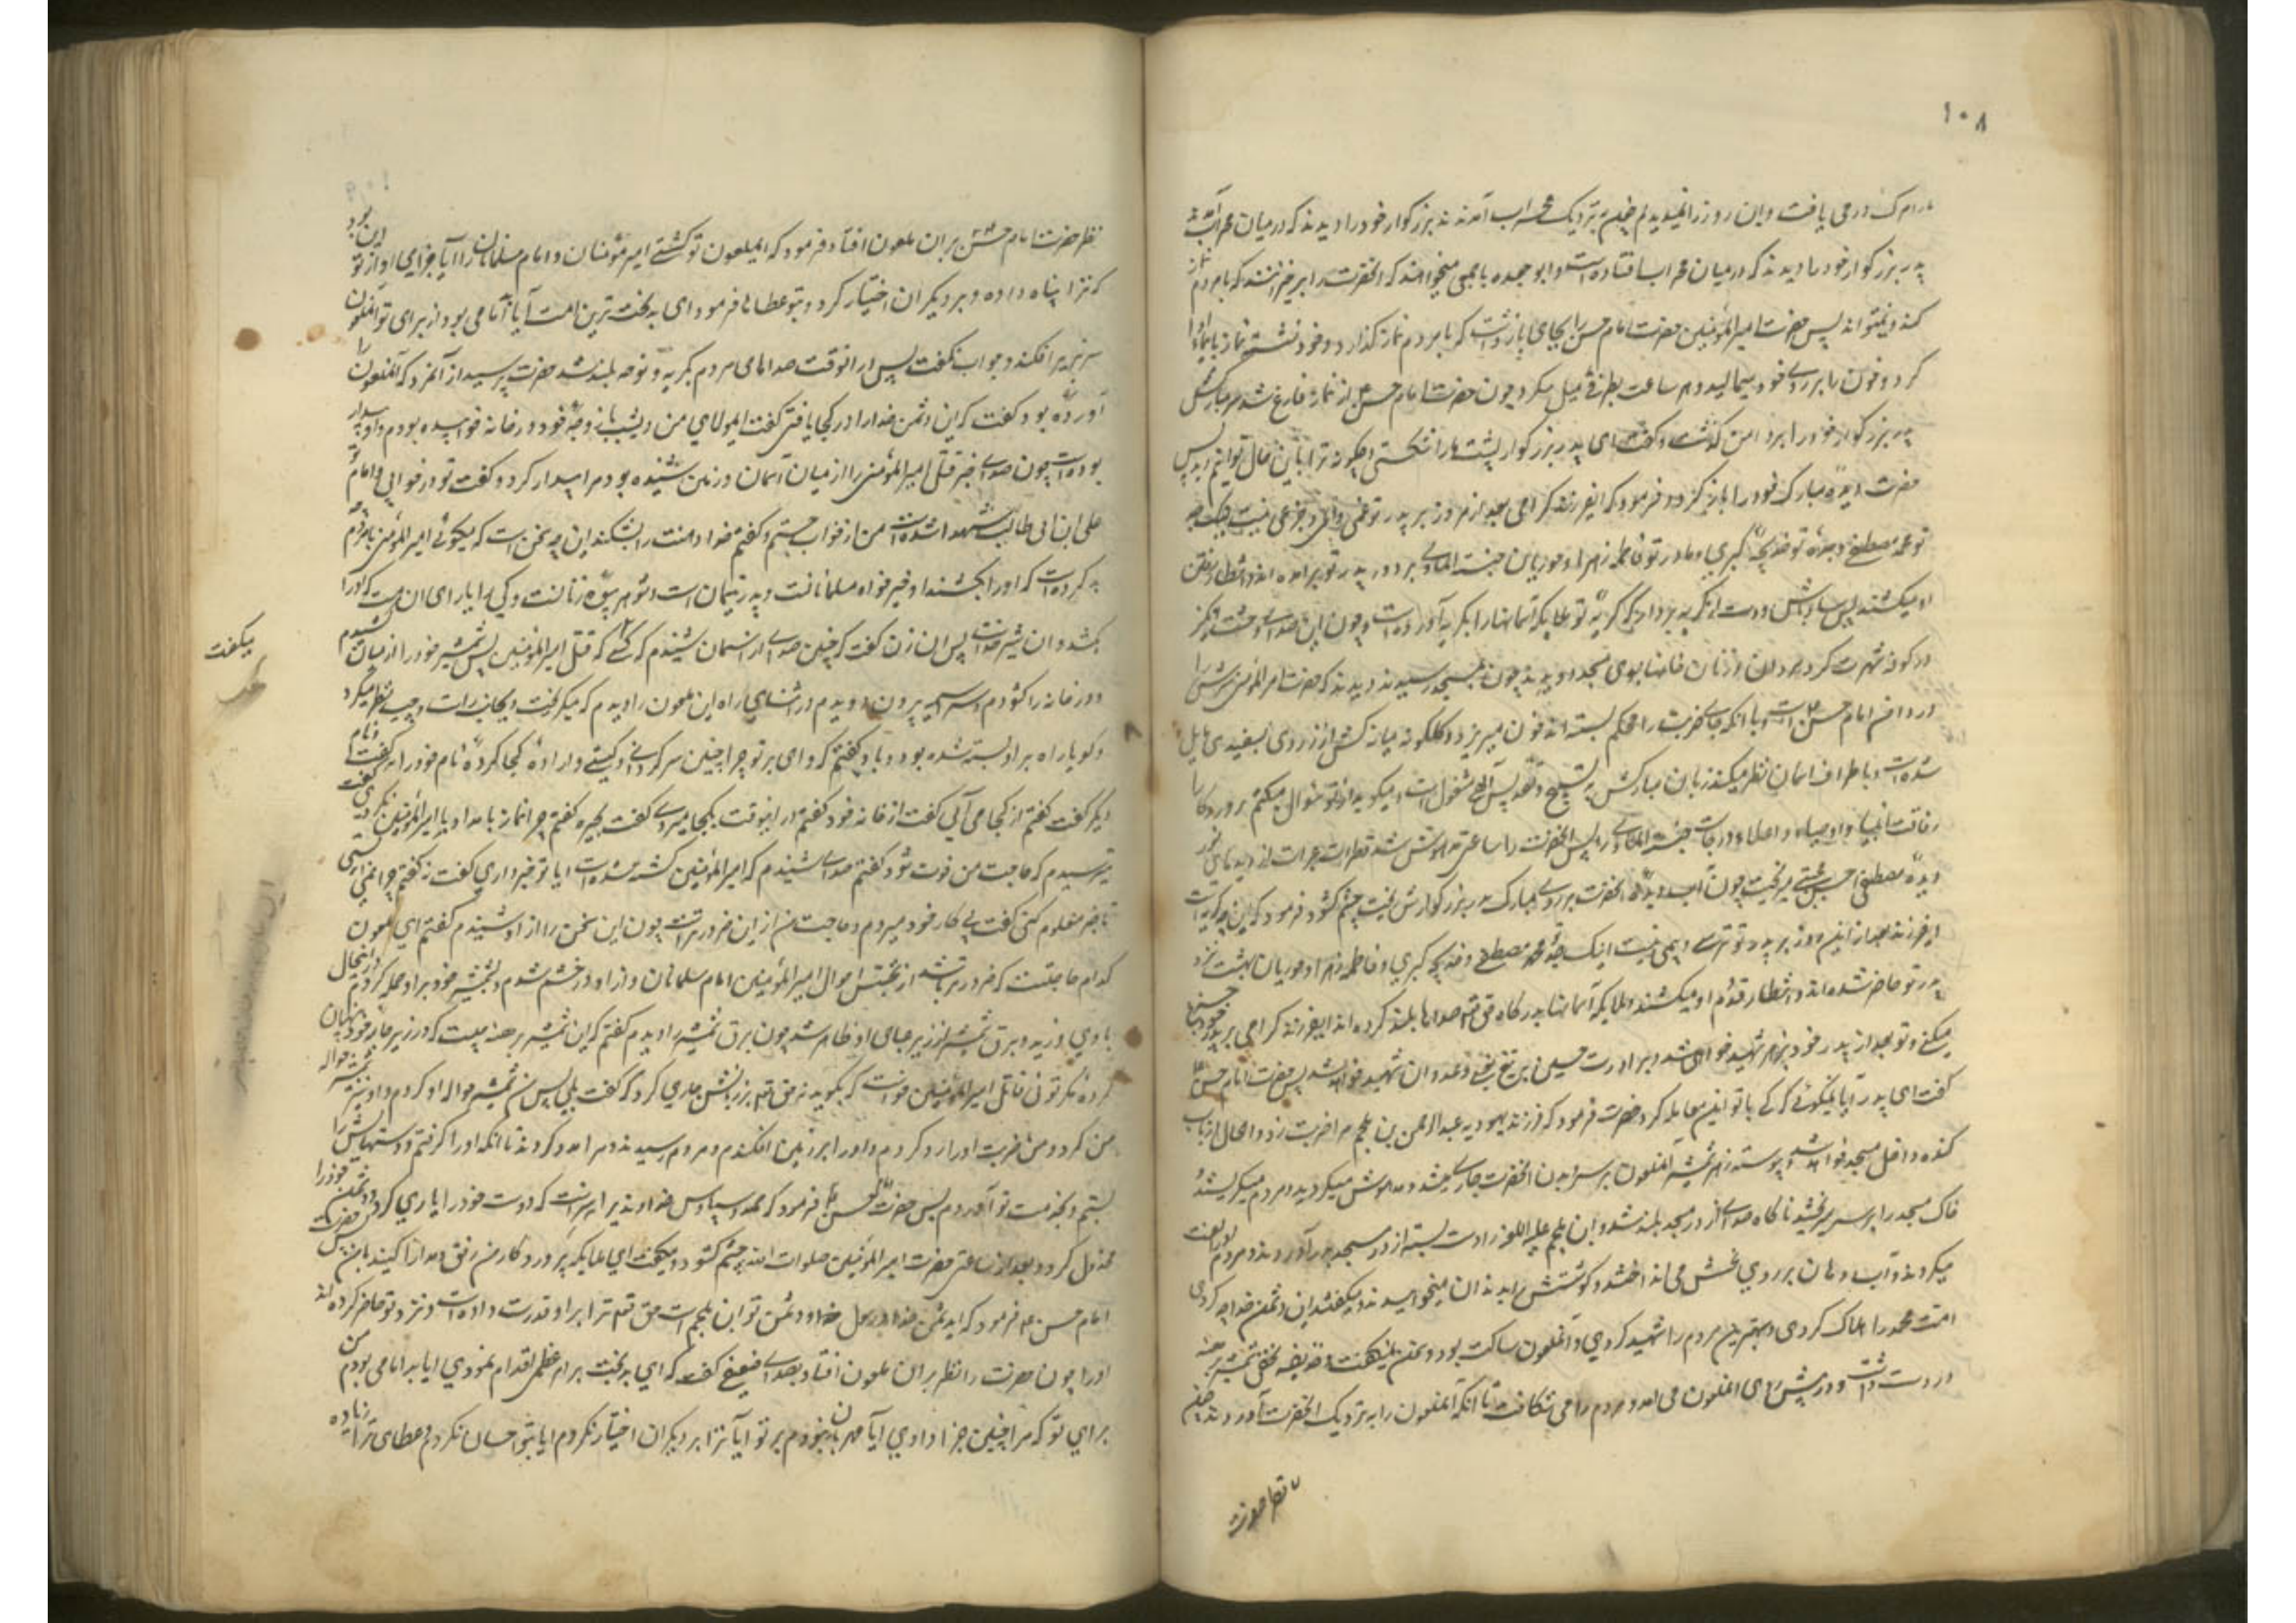 ۱۰۸
یافت و این روز را نمیدیدم چون بنزدیک محراب آمدند بزرگوار خود را دیدند که در میان محراب
پدر بزرگوار خود را دیدند که در میان محراب افتاده است و ابو جعده با جمعی میخواهند که انحضرت را برخیزانند که با مردم نماز
کند و نمیتواند پس حضرت امیرالمؤمنین حضرت امام حسن را بجای باز داشت که با مردم نماز گذارد و خود نشسته نماز بایما ادا
کرد و خون را بر روی خود میمالید و هر ساعت بطرفی میل میکرد چون حضرت امام حسن از نماز فارغ شد سر مبارکش
پدر بزرگوار خود را بر دامن گذاشت و گفت ای پدر بزرگوار پشت مارا شکستی چگونه ترا باین حال توانیم دید پس
حضرت دیده مبارک خود را باز کرد و فرمود که ایفرزند گرامی بعد از امروز بر پدر تو غمی و المی و جزعی نیست اینک جد
تو محمد مصطفی و جده تو خدیجه کبری و مادر تو فاطمه زهرا و حوریان جنت الماوی بر دور پدر تو بر آمده اند و انتظار رفتن
او میکشند پس شاد باش و دست از گریه بردار که گریه تو ملایکه آسمانها را بگریه آورده است و چون این صدای وحشت انگیز
در کوفه شهرت کرد مردان و زنان از خانها بسوی مسجد دویدند چون بمسجد رسیدند دیدند که حضرت امیر المؤمنین سرش را
در دامن امام حسن است و با آنکه جای ضربت را محکم بسته اند خون میریزد و گلگونه مبارکش از زردی بسفیدی مایل
شده است و باطراف آسمان نظر میکند زبان مبارکش به تسبیح و تقدیس الهی مشغول است و میگوید از تو سؤال میکنم پروردگارا
رفاقت انبیا و اوصیاء و اعلاء درجات جنت الماوی را پس انحضرت را ساعتی مدهوش شد قطرات عبرات از دیدهای
دیده مصطفی حسن مجتبی میریخت چون آب دیده انحضرت بر روی مبارک پدر بزرگوارش ریخت چشم گشود فرمود که این چه گریه است
ایفرزند بعد از این روز بر پدر تو ترسی و بیمی نیست اینک جد تو محمد مصطفی و خدیجه کبری و فاطمه زهرا و حوریان بهشت نزد
پدر تو حاضر شده اند و انتظار قدوم او میکشند و ملایکه آسمانها بدرگاه حق تعالی صداها بلند کرده اند ایفرزند گرامی بر پدر خود جزع
میکنی و تو بعد از پدر خود بزهر شهید خواهی شد و برادرت حسین بر تیغ بغی و عدوان شهید خواهد شد پس حضرت امام حسن
گفت ای پدر آیا نمیگوئی که کی با تو این معامله کرد حضرت فرمود که فرزند یهودیه عبدالرحمن بن ملجم مرا ضربت زد و الحال از باب
کنده داخل مسجد خواهد شد پیوسته زهر شمشیر آنملعون بر سر و بدن انحضرت جاری میشد و مدهوش میگردید و مردم میگریستند
خاک مسجد را بر سر میریختند ناگاه صدای از در مسجد بلند شد و ابن ملجم علیه اللعنه را دست بسته از در مسجد در آوردند و مردم او را لعنت
میکردند و آب دهان بر روی نحسش می انداختند و گوشتش را بدندان میخواییدند و میگفتند ای دشمن خدا چه کردی
امت محمد را هلاک کردی و بهترین مردم را شهید کردی و آنملعون ساکت بود و سخن نمیگفت و حذیفه نخعی شمشیر برهنه
در دست داشت و در پیش روی انملعون می امد و مردم را می شکافت تا آنکه آنملعون را بنزدیک انحضرت آوردند چون
نظر حضرت امام حسن بر ان ملعون افتاد فرمود که ایملعون تو کشتی امیر مؤمنان و امام مسلمانان را آیا جزای او از تو این بود
که ترا پناه داده و بر دیگران اختیار کرد و بتو عطاها فرمود ای بدبخت ترین امت آیا بد امامی بود از برای تو آنملعون
سر بزیر افکند و جواب نگفت پس در انوقت صداهای مردم بگریه و نوحه بلند شد حضرت پرسید از آنمرد که آنملعون را
آورده بود گفت که این دشمن خدا را در کجا یافتی گفت ایمولای من دیشب با زوجه خود در خانه خوابیده بودم و او بیدار
بوده است چون صدای خبر قتل امیرالمؤمنین را از میان آسمان و زمین شنیده بود مرا بیدار کرد و گفت تو در خوابی و امام تو
علی ابن ابی طالب شهید شده است من از خواب جستم و گفتم خدا دهنت را بشکند این چه سخن است که میگوئی امیرالمؤمنین با مردم چه
بد کرده است که او را بکشند او خیر خواه مسلمانانست و پدر یتیمان است و شوهر بیوه زنانست و کی را یارای ان هست که او را
بکشد و ان شیر خداست پس ان زن گفت که چنین صدای از اسمان شنیدم که کسی گفت که قتل امیرالمؤمنین پس شمشیر خود را از میان کشیدم
میگفت
و در خانه را گشودم و سراسیمه بیرون دویدم در اثنای راه این ملعون را دیدم که میگریخت و بجانب راست و چپ نظر میکرد
و گویا راه بر او بسته شده بود و باو گفتم که وای بر تو چرا چنین سرگردانی و کیستی و اراده کجا کرده نام خود را نگفت و نام
دیگر گفت گفتم از کجا می آئی گفت از خانه خود گفتم در اینوقت بکجا میروی گفت بحیره گفتم چرا نماز بامداد با امیرالمؤمنین نکردی گفت
ترسیدم که حاجت من فوت شود گفتم صدای شنیدم که امیرالمؤمنین کشته شده است ایا تو خبر داری گفت نه گفتم چرا نمی ایستی
تا خبر معلوم کنی گفت پی کار خود میروم و حاجت من از این ضرورتر است چون این سخن را از او شنیدم گفتم ای ملعون
کدام حاجتست که ضرورتر باشد از تجسس احوال امیرالمؤمنین و امام مسلمانان و از او در خشم شدم و بشمشیر خود بر او حمله کردم در اینحال
بادی وزید و برق شمشیر از زیر عبای او ظاهر شد چون برق شمشیر را دیدم گفتم که این شمشیر برهنه چیست که در زیر جامه خود پنهان
کرده مگر توئی قاتل امیرالمؤمنین خواست که بگوید نه حق تعالی بر زبانش جاری کرد که گفت بلی پس من شمشیر حواله او کردم و او نیز شمشیر حواله
من کرد و من ضربت او را رد کردم و او را بر زمین افکندم و مردم رسیدند و مرا مدد کردند تا انکه او را گرفتم و دستهایش را
بستم و بخدمت تو آوردم پس حضرت امام حسن فرمود که حمد و سپاس خداوندیرا سزاست که دوست خود را یاری کرد و دشمن خود را
مخذول کرد و بعد از ساعتی حضرت امیرالمؤمنین صلوات الله چشم گشود و میگفت ای ملایکه پروردگار من رفق و مدارا کنید با من پس حضرت
امام حسن ع فرمود که اینست دشمن خدا و رسول خدا و دشمن تو ابن ملجم است حق تعالی ترا بر او قدرت داده است و نزد تو حاضر کرده اند
اورا چون حضرت را نظر بران ملعون افتاد بصدای ضعیفی گفت که ای بدبخت بر امر عظیمی اقدام نمودی ایا بد امامی بودم من
برای تو که مرا چنین جزا دادی آیا مهربان نبودم بر تو آیا ترا بر دیگران اختیار نکردم ایا بتو احسان نکردم و عطای ترا زیاده